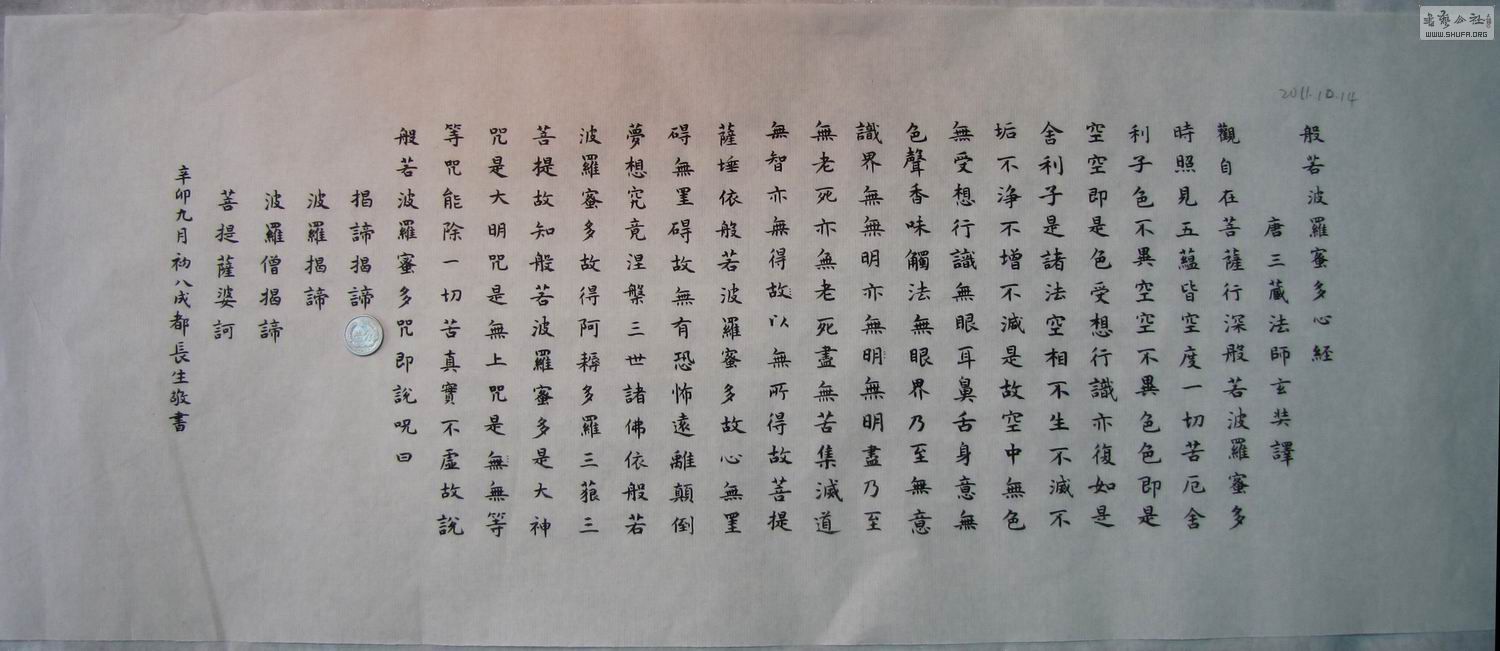 2011.10.14
般若波羅蜜多心経
唐三蔵法師玄奘譯
觀自在菩薩行深般若波羅蜜多
時照見五蘊皆空度一切苦厄舍
利子色不異空空不異色色即是
空空即是色受想行識亦復如是
舍利子是諸法空相不生不滅不
垢不浄不增不減是故空中無色
無受想行識無眼耳鼻舌身意無
色聲香味觸法無眼界乃至無意
識界無無明亦無明無明盡乃至
無老死亦無老死盡無苦集滅道
無智亦無得故以無所得故菩提
薩埵依般若波羅蜜多故心無罣
碍無罣碍故無有恐怖遠離顛倒
夢想究竟涅槃三世諸佛依般若
波羅蜜多故得阿耨多羅三藐三
菩提故知般若波羅蜜多是大神
咒是大明咒是無上咒是無無等
等咒能除一切苦真實不虛故說
般若波羅蜜多咒即說呪曰
揭諦揭諦
波羅揭諦
波羅僧揭諦
菩提薩婆訶
辛卯九月初八成都長生敬書
書藝公社
WWW.SHUFA.ORG